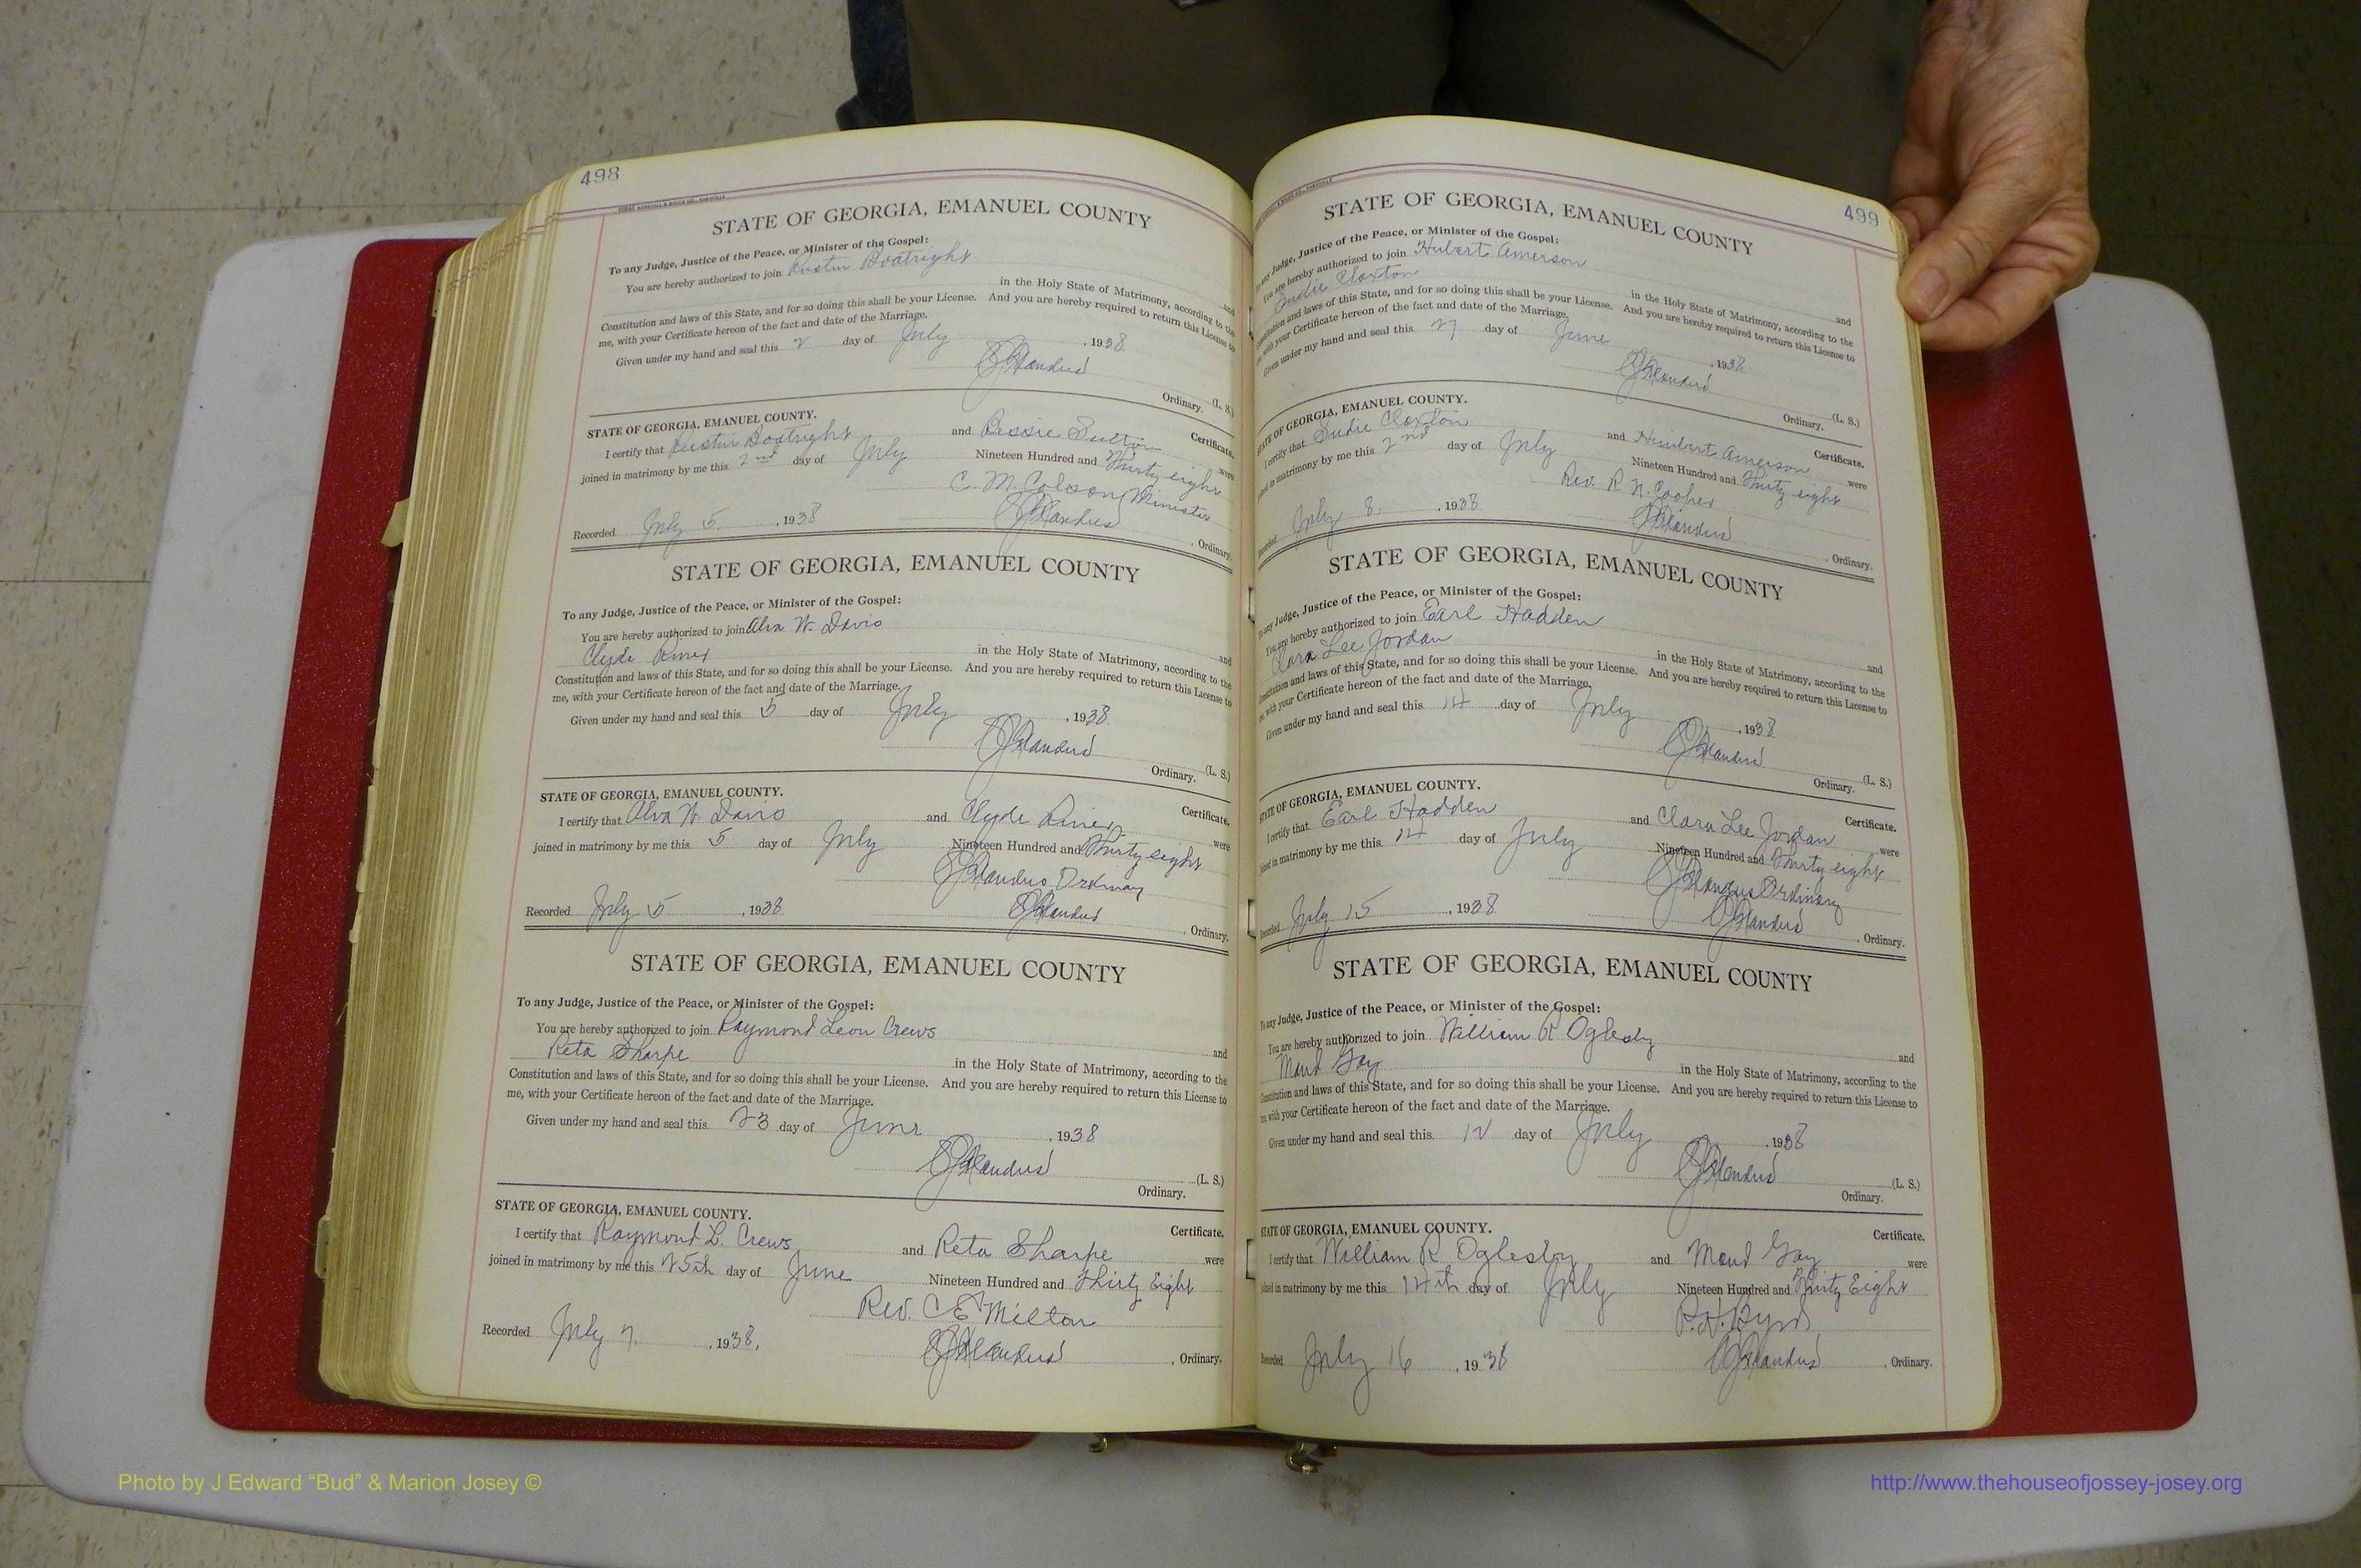 498
STATE OF GEORGIA, EMANUEL COUNTY
To any Judge, Justice of the Peace, or Minister of the Gospel:
You are hereby authorized to join Boatright
and
in the Holy State of Matrimony, according to the
Constitution and laws of this State, and for so doing this shall be your License. And you are hereby required to return this License to
me, with your Certificate hereon of the fact and date of the Marriage.
Given under my hand and seal this 2 day of July, 1938
(L. S.)
Ordinary.
STATE OF GEORGIA, EMANUEL COUNTY.
Certificate.
I certify that Boatright and Bessie were
joined in matrimony by me this 2nd day of July Nineteen Hundred and Thirty eight
C. M. Colson, Minister
Recorded July 5, 1938
, Ordinary.
STATE OF GEORGIA, EMANUEL COUNTY
To any Judge, Justice of the Peace, or Minister of the Gospel:
You are hereby authorized to join Alva W. Davis and
Clyde in the Holy State of Matrimony, according to the
Constitution and laws of this State, and for so doing this shall be your License. And you are hereby required to return this License to
me, with your Certificate hereon of the fact and date of the Marriage.
Given under my hand and seal this 5 day of July, 1938
(L. S.)
Ordinary.
STATE OF GEORGIA, EMANUEL COUNTY.
Certificate.
I certify that Alva W. Davis and Clyde were
joined in matrimony by me this 5 day of July Nineteen Hundred and Thirty eight
Ordinary
Recorded July 5, 1938
, Ordinary.
STATE OF GEORGIA, EMANUEL COUNTY
To any Judge, Justice of the Peace, or Minister of the Gospel:
You are hereby authorized to join Raymond Leon Crews and
Reta Sharpe in the Holy State of Matrimony, according to the
Constitution and laws of this State, and for so doing this shall be your License. And you are hereby required to return this License to
me, with your Certificate hereon of the fact and date of the Marriage.
Given under my hand and seal this 23 day of June, 1938
(L. S.)
Ordinary.
STATE OF GEORGIA, EMANUEL COUNTY.
Certificate.
I certify that Raymond L. Crews and Reta Sharpe were
joined in matrimony by me this 25th day of June Nineteen Hundred and Thirty Eight
Rev. C E Milton
Recorded July 7, 1938.
, Ordinary.
499
STATE OF GEORGIA, EMANUEL COUNTY
To any Judge, Justice of the Peace, or Minister of the Gospel:
You are hereby authorized to join Hubert Amerson and
Sudie Claxton in the Holy State of Matrimony, according to the
Constitution and laws of this State, and for so doing this shall be your License. And you are hereby required to return this License to
me, with your Certificate hereon of the fact and date of the Marriage.
Given under my hand and seal this 27 day of June, 1938
(L. S.)
Ordinary.
STATE OF GEORGIA, EMANUEL COUNTY.
Certificate.
I certify that Sudie Claxton and Amerson were
joined in matrimony by me this 2nd day of July Nineteen Hundred and Thirty eight
Rev. R N. Cooper
Recorded July 8, 1938
, Ordinary.
STATE OF GEORGIA, EMANUEL COUNTY
To any Judge, Justice of the Peace, or Minister of the Gospel:
You are hereby authorized to join Earl Hadden and
Clara Lee Jordan in the Holy State of Matrimony, according to the
Constitution and laws of this State, and for so doing this shall be your License. And you are hereby required to return this License to
me, with your Certificate hereon of the fact and date of the Marriage.
Given under my hand and seal this 14 day of July, 1938
(L. S.)
Ordinary.
STATE OF GEORGIA, EMANUEL COUNTY.
Certificate.
I certify that Earl Hadden and Clara Lee Jordan were
joined in matrimony by me this 14 day of July Nineteen Hundred and Thirty eight
Ordinary
Recorded July 15, 1938
, Ordinary.
STATE OF GEORGIA, EMANUEL COUNTY
To any Judge, Justice of the Peace, or Minister of the Gospel:
You are hereby authorized to join William R Oglesby and
Maud Gay in the Holy State of Matrimony, according to the
Constitution and laws of this State, and for so doing this shall be your License. And you are hereby required to return this License to
me, with your Certificate hereon of the fact and date of the Marriage.
Given under my hand and seal this 12 day of July, 1938
(L. S.)
Ordinary.
STATE OF GEORGIA, EMANUEL COUNTY.
Certificate.
I certify that William R. Oglesby and Maud Gay were
joined in matrimony by me this 14th day of July Nineteen Hundred and Thirty Eight
Byrd
Recorded July 16, 1938
, Ordinary.
Photo by J Edward “Bud” & Marion Josey ©
http://www.thehouseofjossey-josey.org